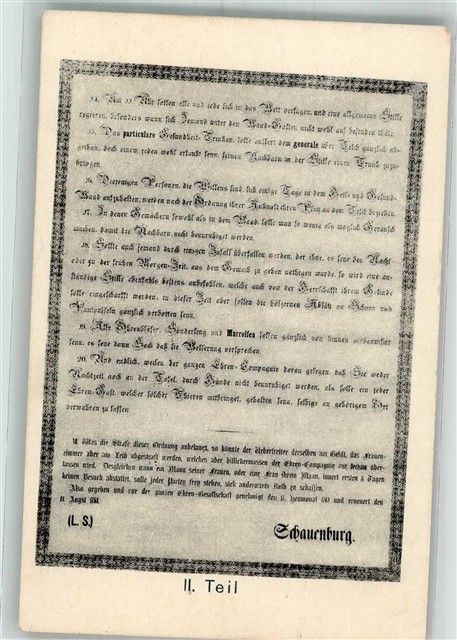 14. Um 10 Uhr sollen alle und jede sich in das Bett verfügen, und eine allgemeine Stille
regieren, besonders wann sich Jemand unter den Baad-Gästen nicht wohl auf befinden thäte.
15. Das particulare Gesundheit-Trinken, solle ausser dem generale über Tisch gänzlich ab-
gethan, doch einem jeden wohl erlaubt seyn, seinen Nachbarn in der Stille einen Trunk zuzu-
bringen.
16. Diejenigen Personen, die Willens sind, sich einige Tage in dem Heils- und Gesund-
Baad aufzuhalten, werden nach der Ordnung ihrer Ankunft ihren Platz an dem Tisch beziehen.
17. In denen Gemächern sowohl als in dem Baad, solle man so wenig als möglich Geräusch
machen, damit die Nachbarn nicht beunruhiget werden.
18. Sollte auch jemand durch einigen Zufall überfallen werden, der ihne, es seye bey Nacht
oder zu der frühen Morgen-Zeit, aus dem Gemach zu gehen nöthigen wurde, so wird eine an-
ständige Stille ebenfalls bestens anbefohlen, welche auch von der Herrschaft ihrem Gesinde
solle eingeschärft werden, in dieser Zeit aber sollen die hölzernen Absätz an Schuen und
Pantoufflen gänzlich verbotten seyn.
19. Alle Ohrenbläser, Sonderling und Marroffen sollen gänzlich von hinnen verbannisirt
seyn, es seye dann Sach daß sie Besserung versprechen.
20. Und endlich, weilen der ganzen Ehren-Compagnie daran gelegen, daß Sie weder
Nachtzeit noch an der Tafel, durch Hünde nicht beunruhiget werden, als solle ein jeder
Ehren-Gast, welcher solcher Thieren mitbringet, gehalten seyn, selbige an gehörigem Ort
verwahren zu lassen.
Was die Strafe dieser Ordnung anbelanget, so könnte der Uebertretter derselben an Geld, das Frauen-
zimmer aber am Leib abgestraft werden, welches aber billichermassen der Ehren-Compagnie zur über-
lassen wird. Desgleichen wann ein Mann seiner Frauen, oder eine Frau ihrem Mann, innert ersten 8 Tagen
keinen Besuch abstattet, solle jeder Partey frey stehen, sich anderwärts Rath zu schaffen.
Also gegeben und von der ganzen Ehren-Gesellschaft genehmiget den Heumonat und erneuert den
11 Augst
(L. S.)
Schauenburg.
II. Teil